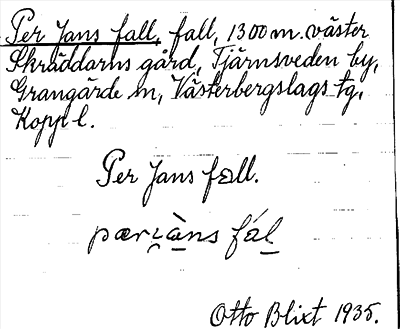 Per Jans fall, fall, 1300 m. väster
Skräddarns gård, Tjärnsveden by,
Grangärde sn, Västerbergslags tg,
Koppl.
Per Jans fall.
pærjàns fál
Otto Blixt 1935.